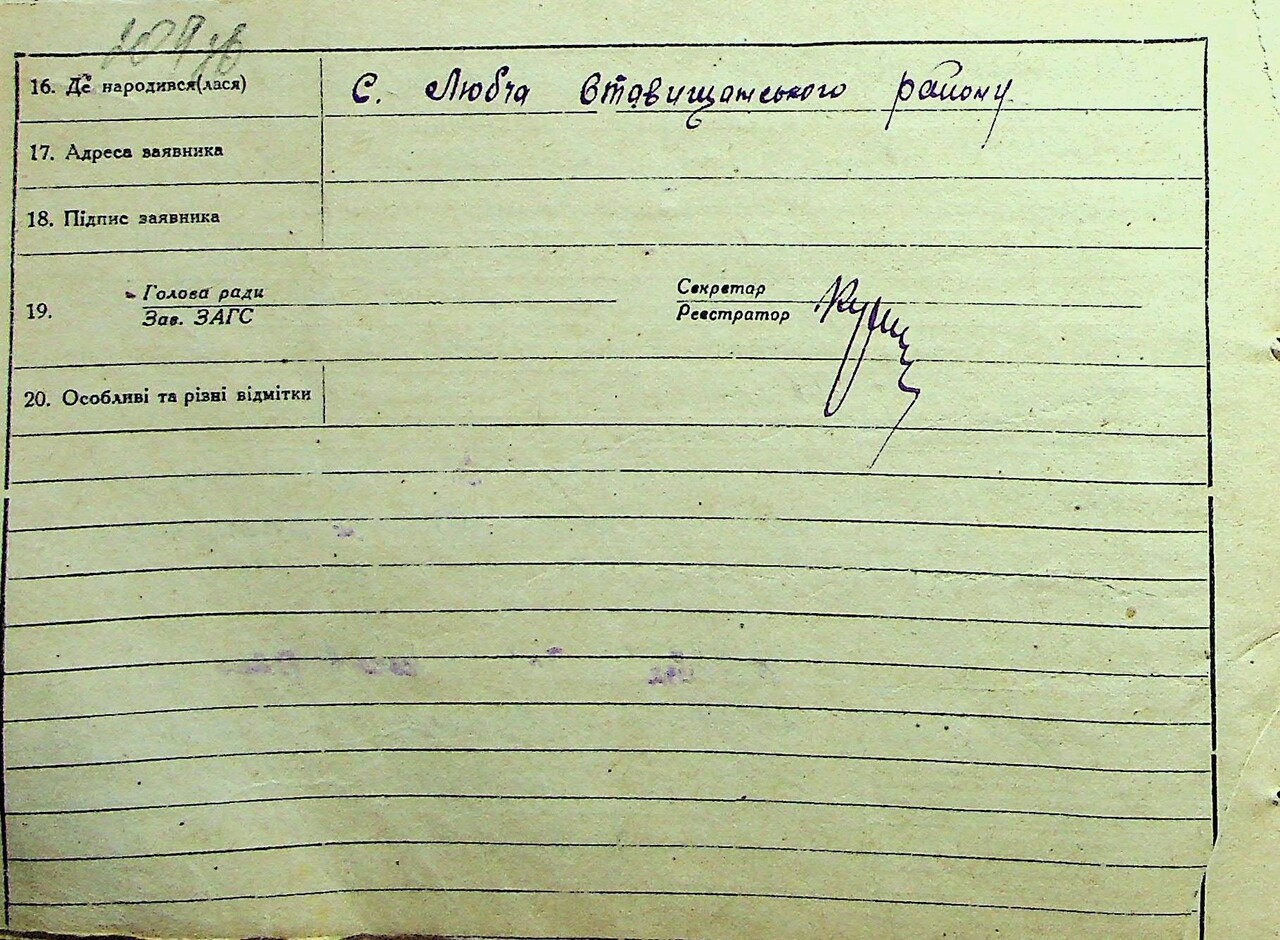 16. Де народився(лася) с. Любча Ставищанського району
17. Адреса заявника
18. Підпис заявника
19. Голова ради
Зав. ЗАГС
Секретар
Реєстратор
20. Особливі та різні відмітки